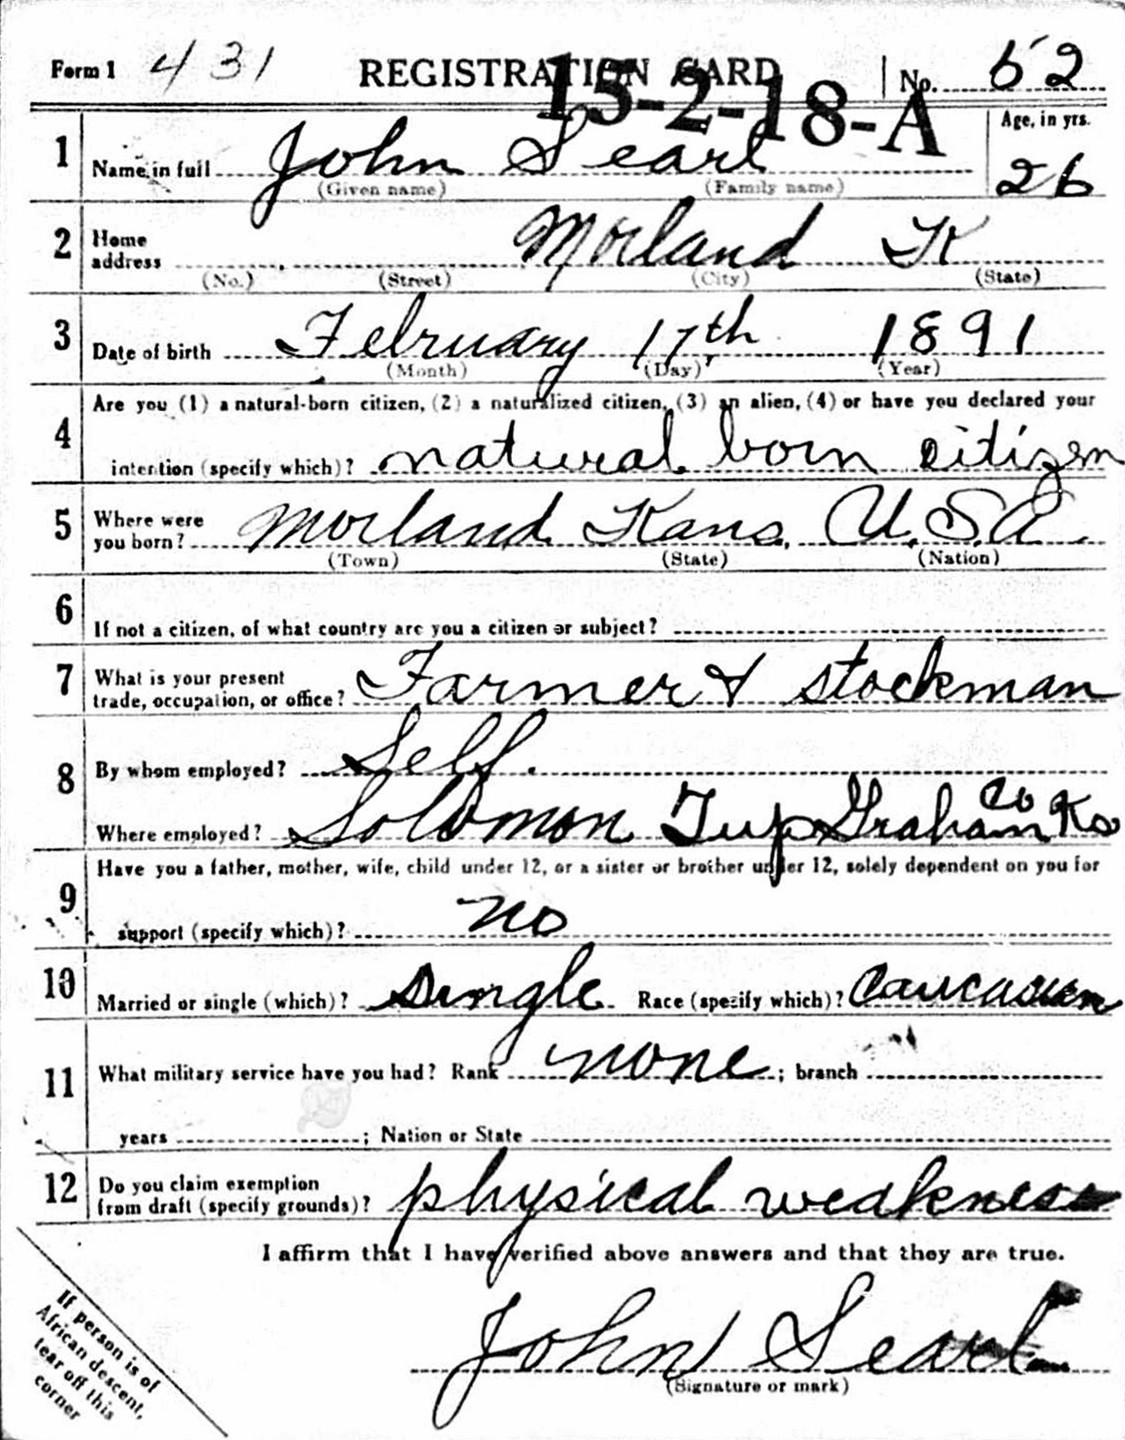 Form 1 431 REGISTRATION CARD No. 52
15-2-18-A
1 Name in full John Searl Age, in yrs.
(Given name) (Family name) 26
2 Home address Morland K
(No.) (Street) (City) (State)
3 Date of birth February 17th 1891
(Month) (Day) (Year)
4 Are you (1) a natural-born citizen, (2) a naturalized citizen, (3) an alien, (4) or have you declared your
intention (specify which)? natural born citizen
5 Where were you born? Morland Kans. U.S.A.
(Town) (State) (Nation)
6 If not a citizen, of what country are you a citizen or subject?
7 What is your present trade, occupation, or office? Farmer & stockman
8 By whom employed? Self.
Where employed? Solomon Tup Graham Co Ks
9 Have you a father, mother, wife, child under 12, or a sister or brother under 12, solely dependent on you for
support (specify which)? no
10 Married or single (which)? Single Race (specify which)? Caucasian
11 What military service have you had? Rank none ; branch
years ; Nation or State
12 Do you claim exemption from draft (specify grounds)? physical weakness
I affirm that I have verified above answers and that they are true.
John Searl
(Signature or mark)
If person is of
African descent,
tear off this
corner